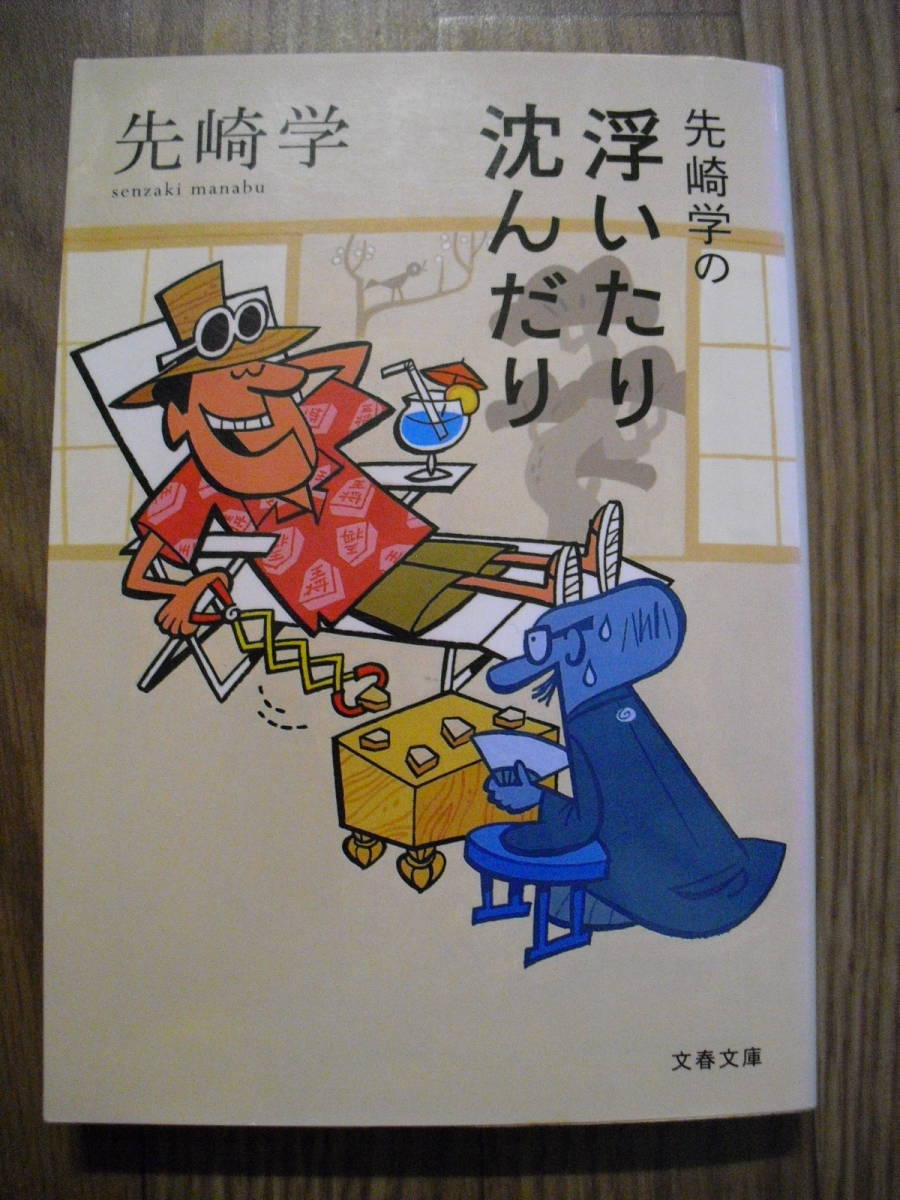 先崎学の
浮いたり
沈んだり
先崎学
senzaki manabu
文春文庫